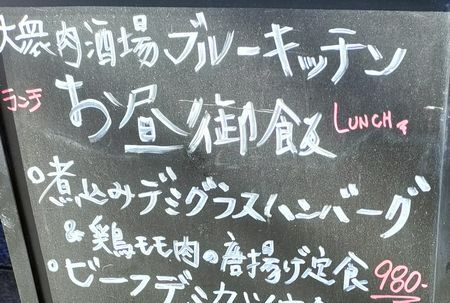 大衆肉酒場ブルーキッチン
ランチ お昼御飯 LUNCH
煮込みデミグラスハンバーグ
&鶏モモ肉の唐揚げ定食 980-
・ビーフデミカツ